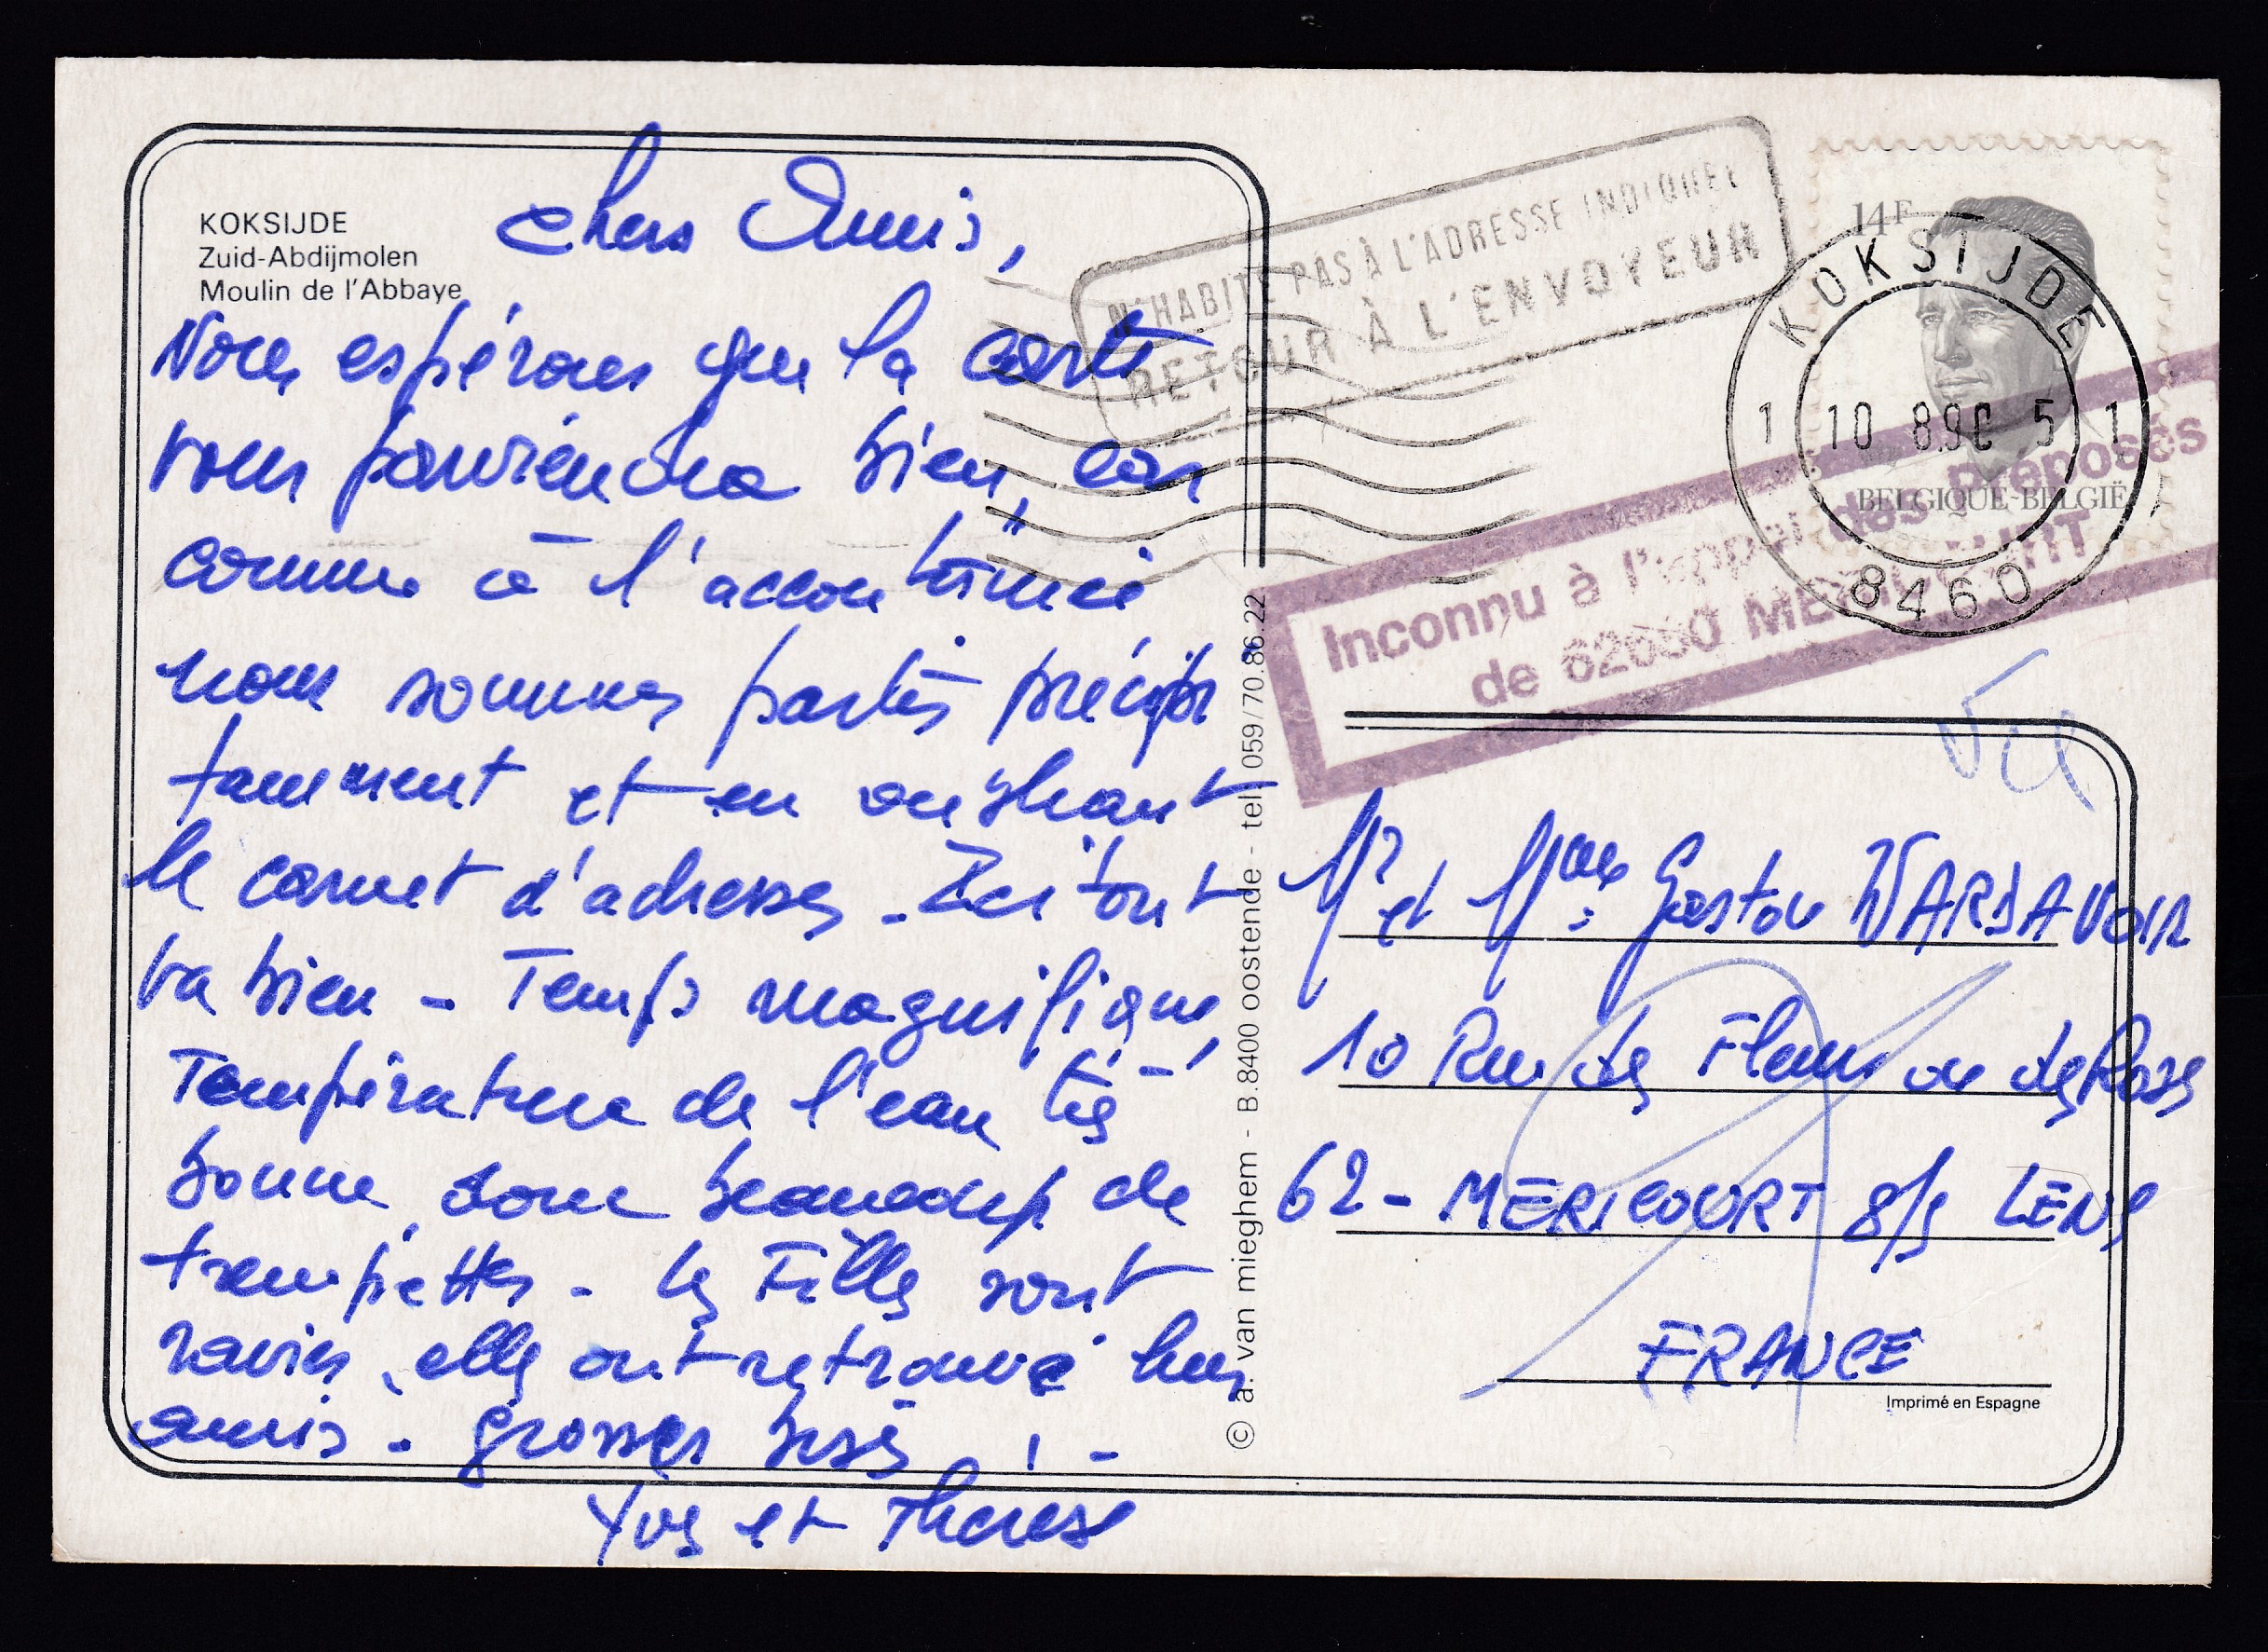 KOKSIJDE
Zuid-Abdijmolen
Moulin de l'Abbaye
Chers Amis,
Nous espérons que la carte
vous parviendra bien, car
comme à l'accoutumée
nous sommes partis précipi
tamment et en oubliant
le carnet d'adresses. Ici tout
va bien - Temps magnifique,
Température de l'eau très
bonne, donc beaucoup de
trempettes - les Filles sont
ravies, elles ont retrouvé leurs
amis - grosses bises ! -
Yves et Thérèse
© a. van mieghem - B.8400 oostende - tel. 059/70.86.22
N'HABITE PAS À L'ADRESSE INDIQUÉE
RETOUR À L'ENVOYEUR
14F
BELGIQUE-BELGIË
KOKSIJDE
1 10 8.90 5 1
8460
Inconnu à l'appel des préposés
de 62680 MERICOURT
Mr et Mme Gaston
10 Rue des Fleurs ou des Roses
62 - MERICOURT s/s LENS
FRANCE
Imprimé en Espagne